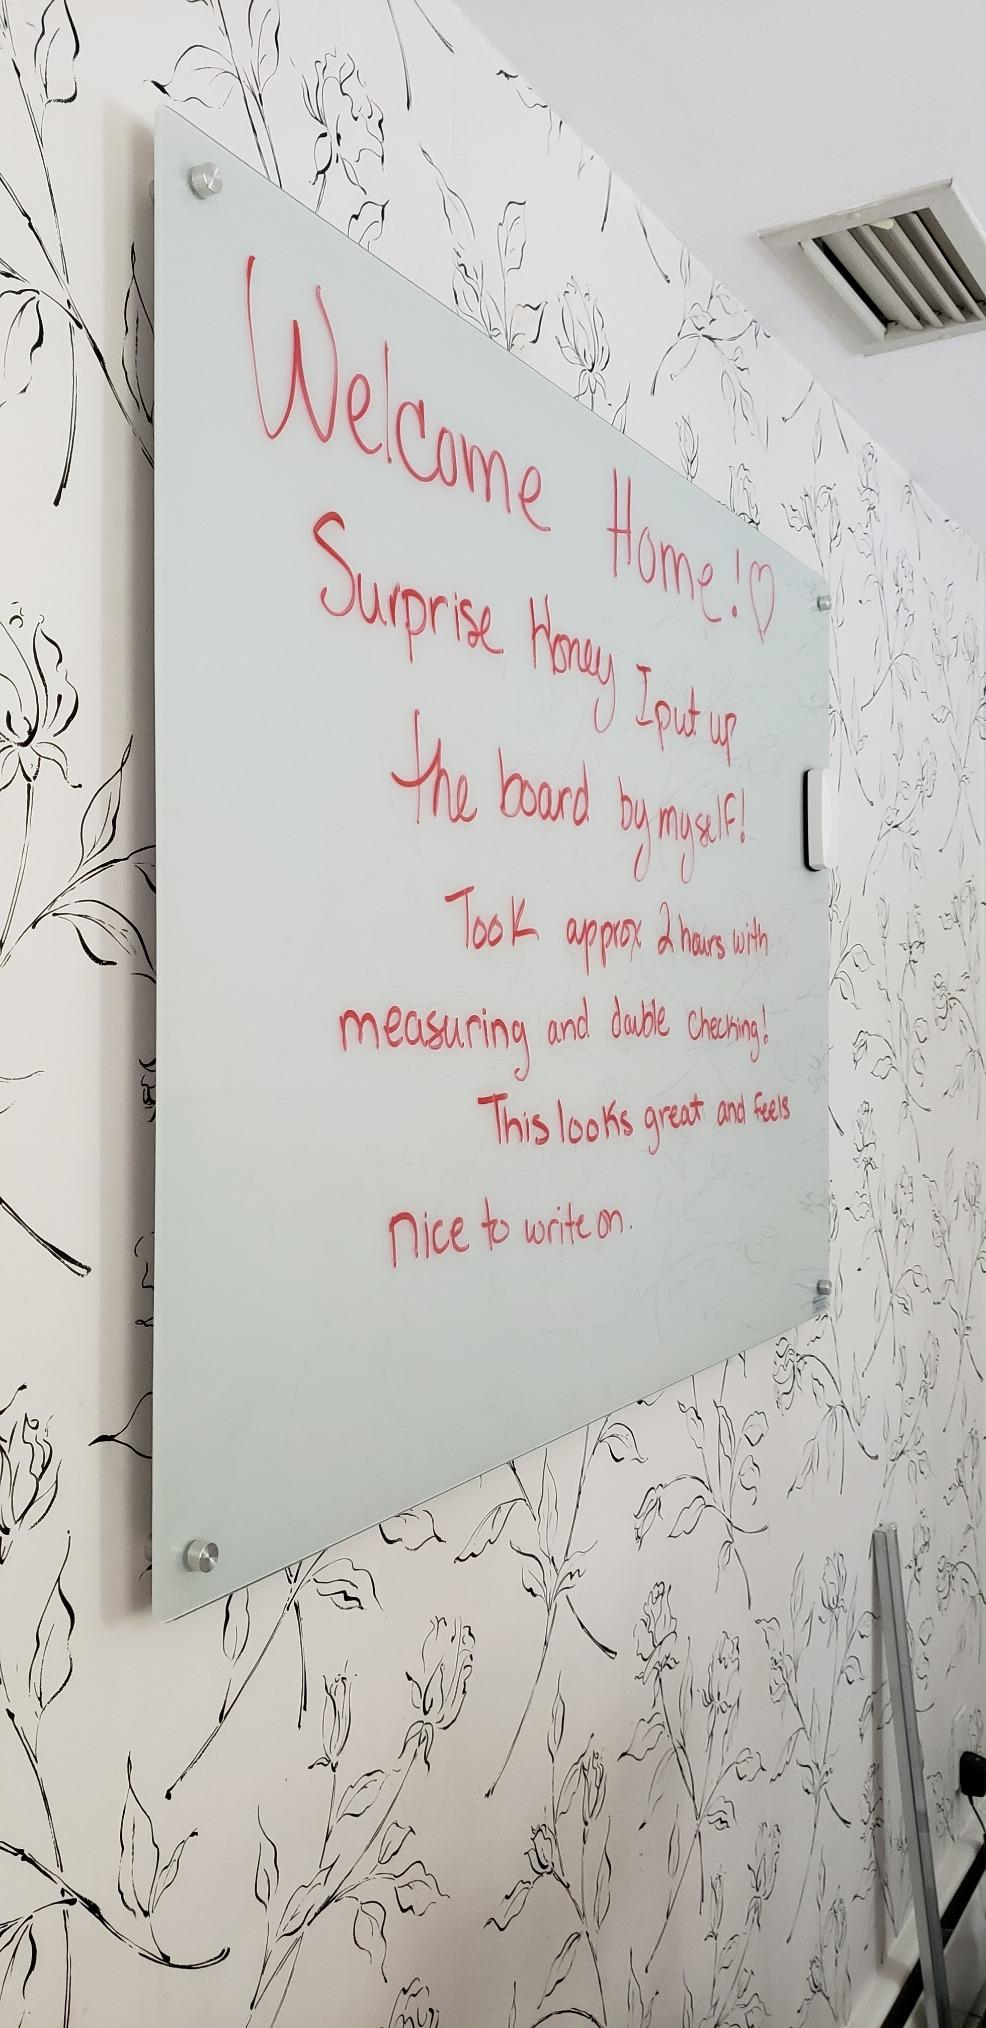 Welcome Home! ♡
Surprise Honey I put up
the board by myself!
Took approx 2 hours with
measuring and double checking!
This looks great and feels
nice to write on.